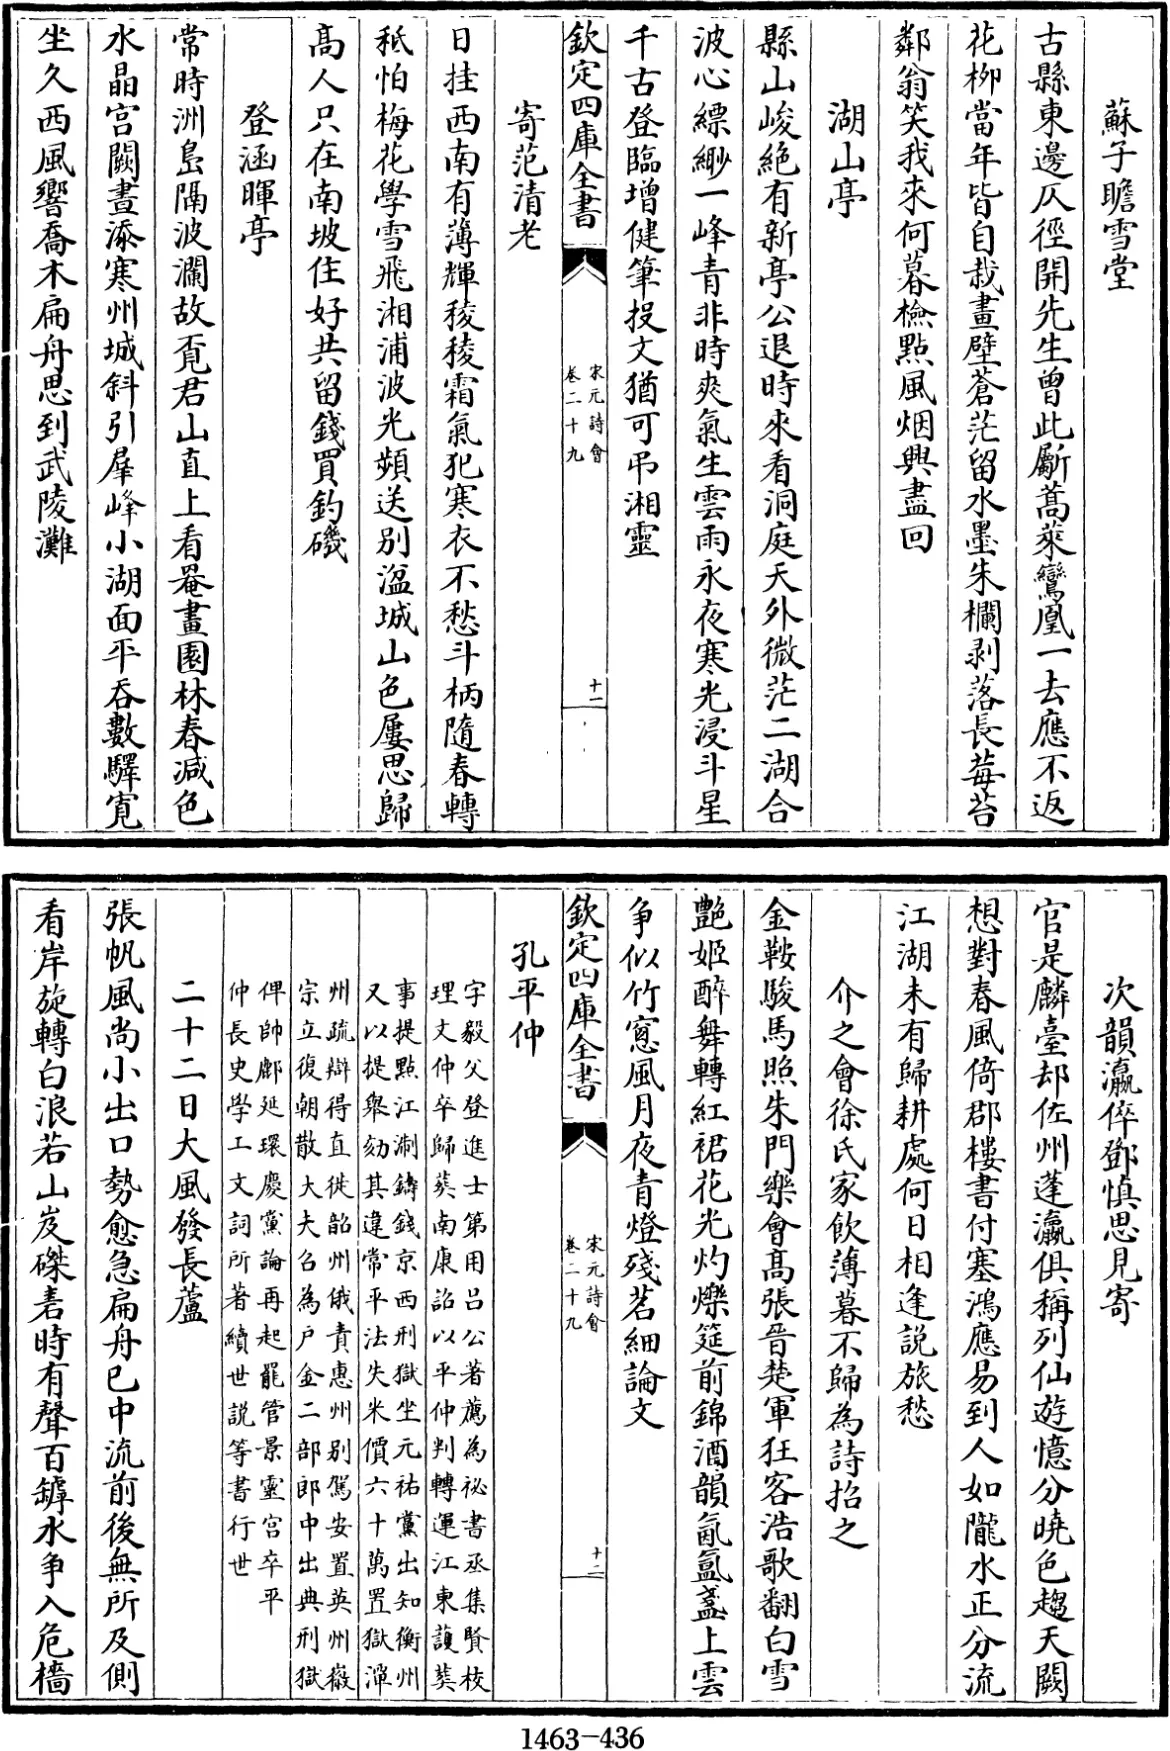 蘇子瞻雪堂
古縣東邊仄徑開先生曾此斸蒿萊鸞凰一去應不返
花柳當年皆自栽畫壁蒼茫留水墨朱欄剥落長莓苔
鄰翁笑我來何暮檢點風烟興盡回
湖山亭
縣山峻絶有新亭公退時來看洞庭天外微茫二湖合
波心縹緲一峰青非時爽氣生雲雨永夜寒光浸斗星
千古登臨增健筆投文猶可弔湘靈
欽定四庫全書
宋元詩會
卷二十九
十一
寄范清老
日挂西南有薄輝稜稜霜氣犯寒衣不愁斗柄隨春轉
秖怕梅花學雪飛湘浦波光頻送别湓城山色屢思歸
高人只在南坡住好共留錢買釣磯
登涵暉亭
常時洲島隔波瀾故覓君山直上看罨畫園林春減色
水晶宫闕晝添寒州城斜引羣峰小湖面平吞數驛寛
坐久西風響喬木扁舟思到武陵灘
次韻瀛倅鄧慎思見寄
官是麟臺却佐州蓬瀛俱稱列仙遊憶分曉色趨天闕
想對春風倚郡樓書付塞鴻應易到人如隴水正分流
江湖未有歸耕處何日相逢説旅愁
介之會徐氏家飲薄暮不歸為詩招之
金鞍駿馬照朱門樂會髙張晉楚軍狂客浩歌翻白雪
艷姬醉舞轉紅裙花光灼爍筵前錦酒韻氤氲盞上雲
争似竹窻風月夜青燈殘茗細論文
欽定四庫全書
宋元詩會
卷二十九
十二
孔平仲
字毅父登進士第用吕公著薦為祕書丞集賢校
理文仲卒歸葬南康詔以平仲判轉運江東護葬
事提點江淛鑄錢京西刑獄坐元祐黨出知衡州
又以提舉劾其違常平法失米價六十萬置獄潭
州疏辯得直徙韶州俄責惠州别駕安置英州徽
宗立復朝散大夫召為户金二部郎中出典刑獄
俾帥鄜延環慶黨論再起罷管景靈宫卒平
仲長史學工文詞所著續世説等書行世
二十二日大風發長蘆
張帆風尚小出口勢愈急扁舟已中流前後無所及側
看岸旋轉白浪若山岌磔砉時有聲百罅水争入危檣
1463-436